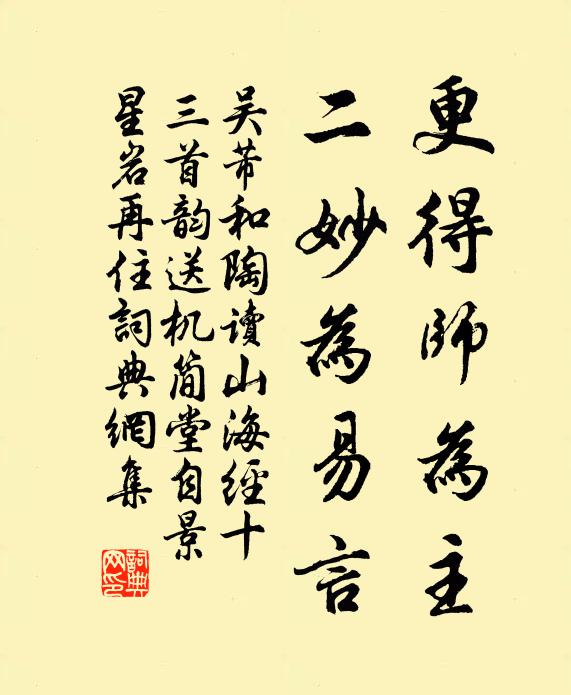 更得師為主
二妙為易言
吴芾和陶讀山海經十
三首韵送机简堂自景
星岩再住詞典網集
詞典網印